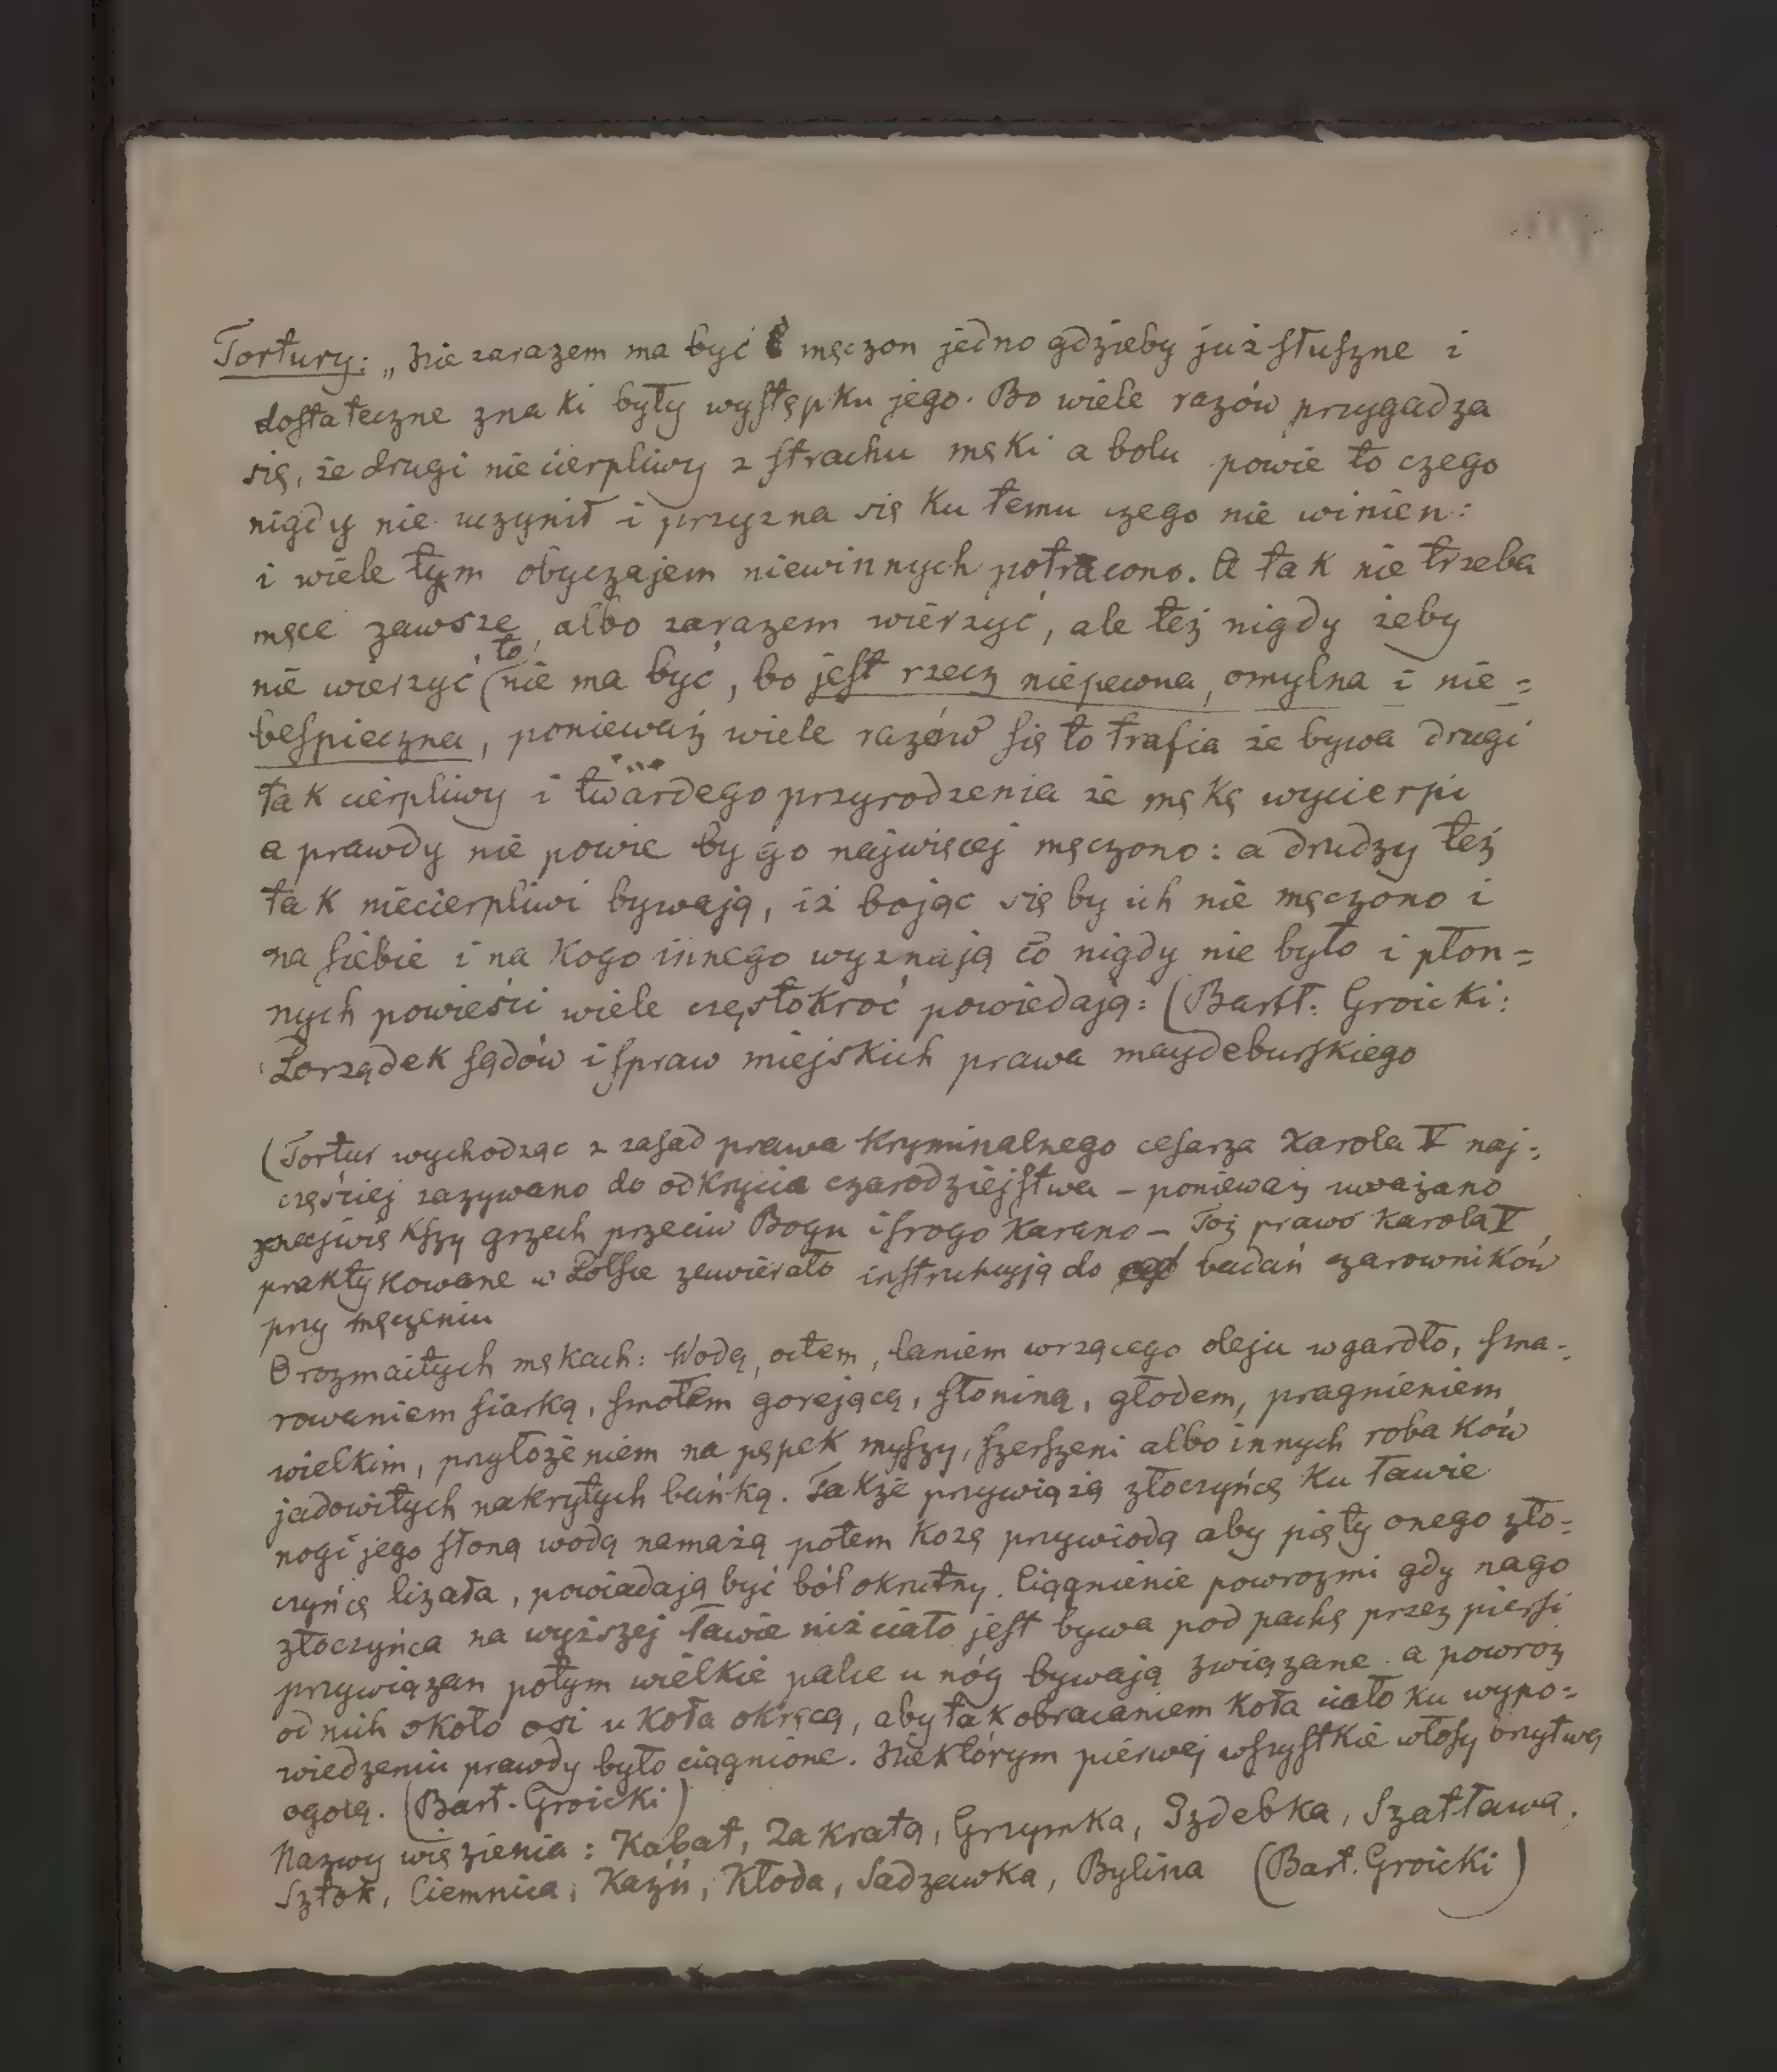 Tortury: „Nie zarazem ma być męczon jedno gdzieby już słuszne i
dostateczne znaki były występku jego. Bo wiele razów przygadza
się, że drugi niecierpliwy z strachu męki a bolu powie to czego
nigdy nie uczynił i przyzna się ku temu czego nie winien:
i wiele tym obyczajem niewinnych potracono. A tak nie trzeba
męce zawsze albo zarazem wierzyć, ale też nigdy żeby
nie wierzyć, to nie ma być, bo jest rzecz niepewna, omylna i nie=
bespieczna, ponieważ wiele razów się to trafia że bywa drugi
tak cierpliwy i twardego przyrodzenia że mękę wycierpi
a prawdy nie powie by go najwięcej męczono: a drudzy też
tak niecierpliwi bywają, iż bojąc się by ich nie męczono i
na siebie i na kogo innego wyznają co nigdy nie było i płon=
nych powieści wiele częstokroć powiedają: (Bartł. Groicki:
Porządek sądów i spraw miejskich prawa maydeburskiego
(Tortur wychodząc z zasad prawa kryminalnego cesarza Karola V naj=
częściej zazywano do odkrycia czarodziejstwa – ponieważ uważano
największy grzech przeciw Bogu i srogo karano – Toż prawo Karola V
praktykowane w Polsce zawierało instrukcyją do badań czarowników
przy męczeniu
O rozmaitych mękach: Wodą, octem, laniem wrzącego oleju w gardło, sma=
rowaniem siarką, smołem gorejącą, słoniną, głodem, pragnieniem
wielkim, przyłożeniem na pępek myszy, szerszeni albo innych robaków
jadowitych nakrytych bańką. Także przywiążą złoczyńcę ku ławie
nogi jego słoną wodą namażą potem kozę przywiodą aby pięty onego zło=
czyńcę lizała, powiadają być ból okrutny. Ciągnienie powrozmi gdy nago
złoczyńca na wyższej ławie niż ciało jest bywa pod pachę przez piersi
przywiązan potym wielkie palce u nóg bywają związane a powroz
od nich około osi u koła okręcą, aby tak obracaniem koła ciało ku wypo=
wiedzeniu prawdy było ciągnione. Niektórym pierwej wszystkie włosy brzytwą
ogolą. (Bart. Groicki)
Nazwy więzienia: Kabat, Za kratą, Grzymka, Izdebka, Szatława,
Sztok, Ciemnica, Kaźń, Kłoda, Sadzawka, Bylina (Bart. Groicki)